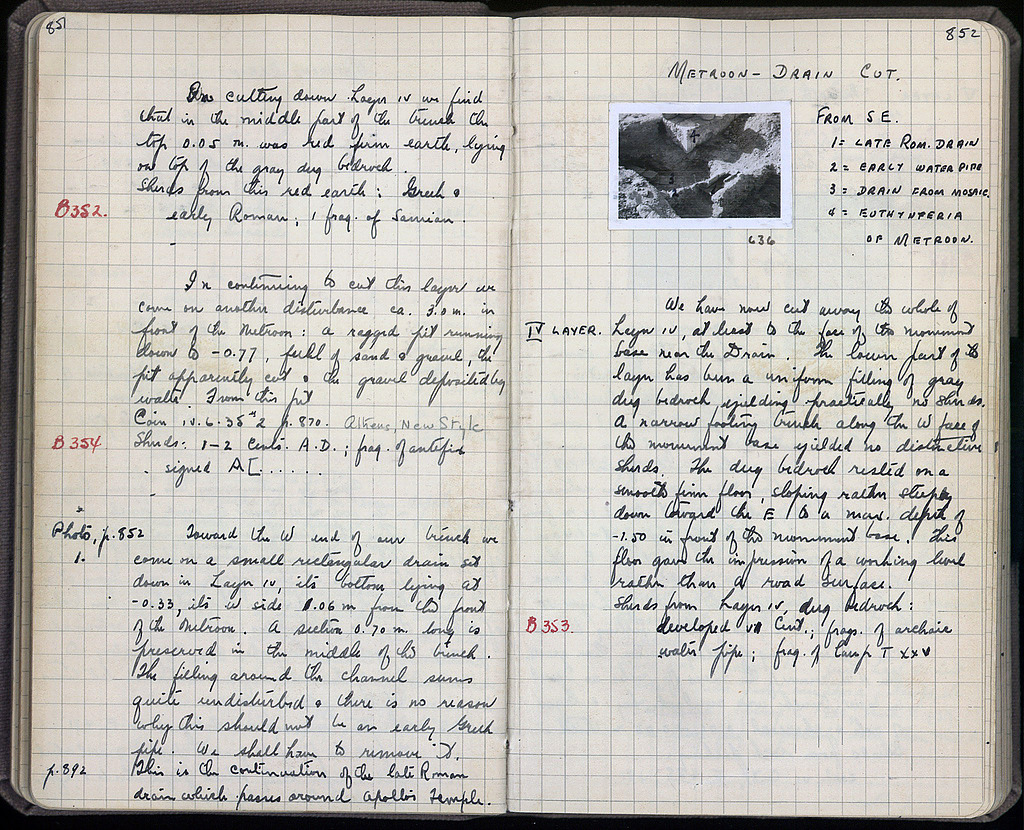 851
In cutting down Layer IV we find
that in the middle part of the trench the
top 0.05 m. was red firm earth, lying
on top of the gray dug bedrock.
Sherds from this red earth: Greek &
B352.
early Roman; 1 frag. of Samian.
In continuing to cut this layer we
come on another disturbance ca. 3.0 m. in
front of the Metroon: a ragged pit running
down to -0.77, full of sand & gravel, the
pit apparently cut & the gravel deposited by
water. From this pit
Coin iv.6.35 #2 p.870. Athens, New Style
B354
Sherds: 1-2 Cents. A.D.; frag. of antefix
signed A[......
Photo, p.852
1.
Toward the W end of our trench we
come on a small rectangular drain set
down in Layer IV, its bottom lying at
-0.33, its W side 1.06 m from the front
of the Metroon. A section 0.70 m. long is
preserved in the middle of the trench.
The filling around the channel seems
quite undisturbed & there is no reason
why this should not be an early Greek
pipe. We shall have to remove it.
p.892
This is the continuation of the late Roman
drain which passes around Apollo's Temple.
852
METROON - DRAIN CUT.
FROM SE.
1 = LATE ROM. DRAIN
2 = EARLY WATER PIPE
3 = DRAIN FROM MOSAIC.
4 = EUTHYNTERIA
OF METROON.
4
3
636
We have now cut away the whole of
IV LAYER.
Layer IV, at least to the face of the monument
base near the Drain. The lower part of the
layer has been a uniform filling of gray
dug bedrock, yielding practically no sherds.
A narrow footing trench along the W face of
the monument base yielded no distinctive
sherds. The dug bedrock rested on a
smooth firm floor, sloping rather steeply
down toward the E to a max. depth of
-1.50 in front of the monument base. This
floor gave the impression of a working level
rather than a road surface.
Sherds from Layer IV, dug bedrock:
B353.
developed VI Cent.; frags. of archaic
water pipe; frag. of lamp T XXV